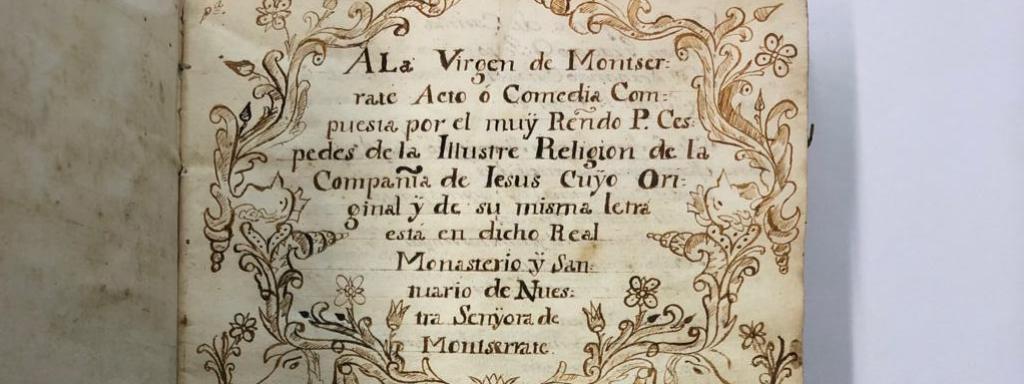 A La Virgen de Montser:
rate Acto ó Comedia Com:
puesta por el muÿ Reñdo P. Ces:
pedes de la Illustre Religion de la
Compañia de Iesus Cuÿo Ori:
ginal ÿ de su misma letra
está en dicho Real
Monasterio ÿ San:
tuario de Nues:
tra Senÿora de
Montserrate.